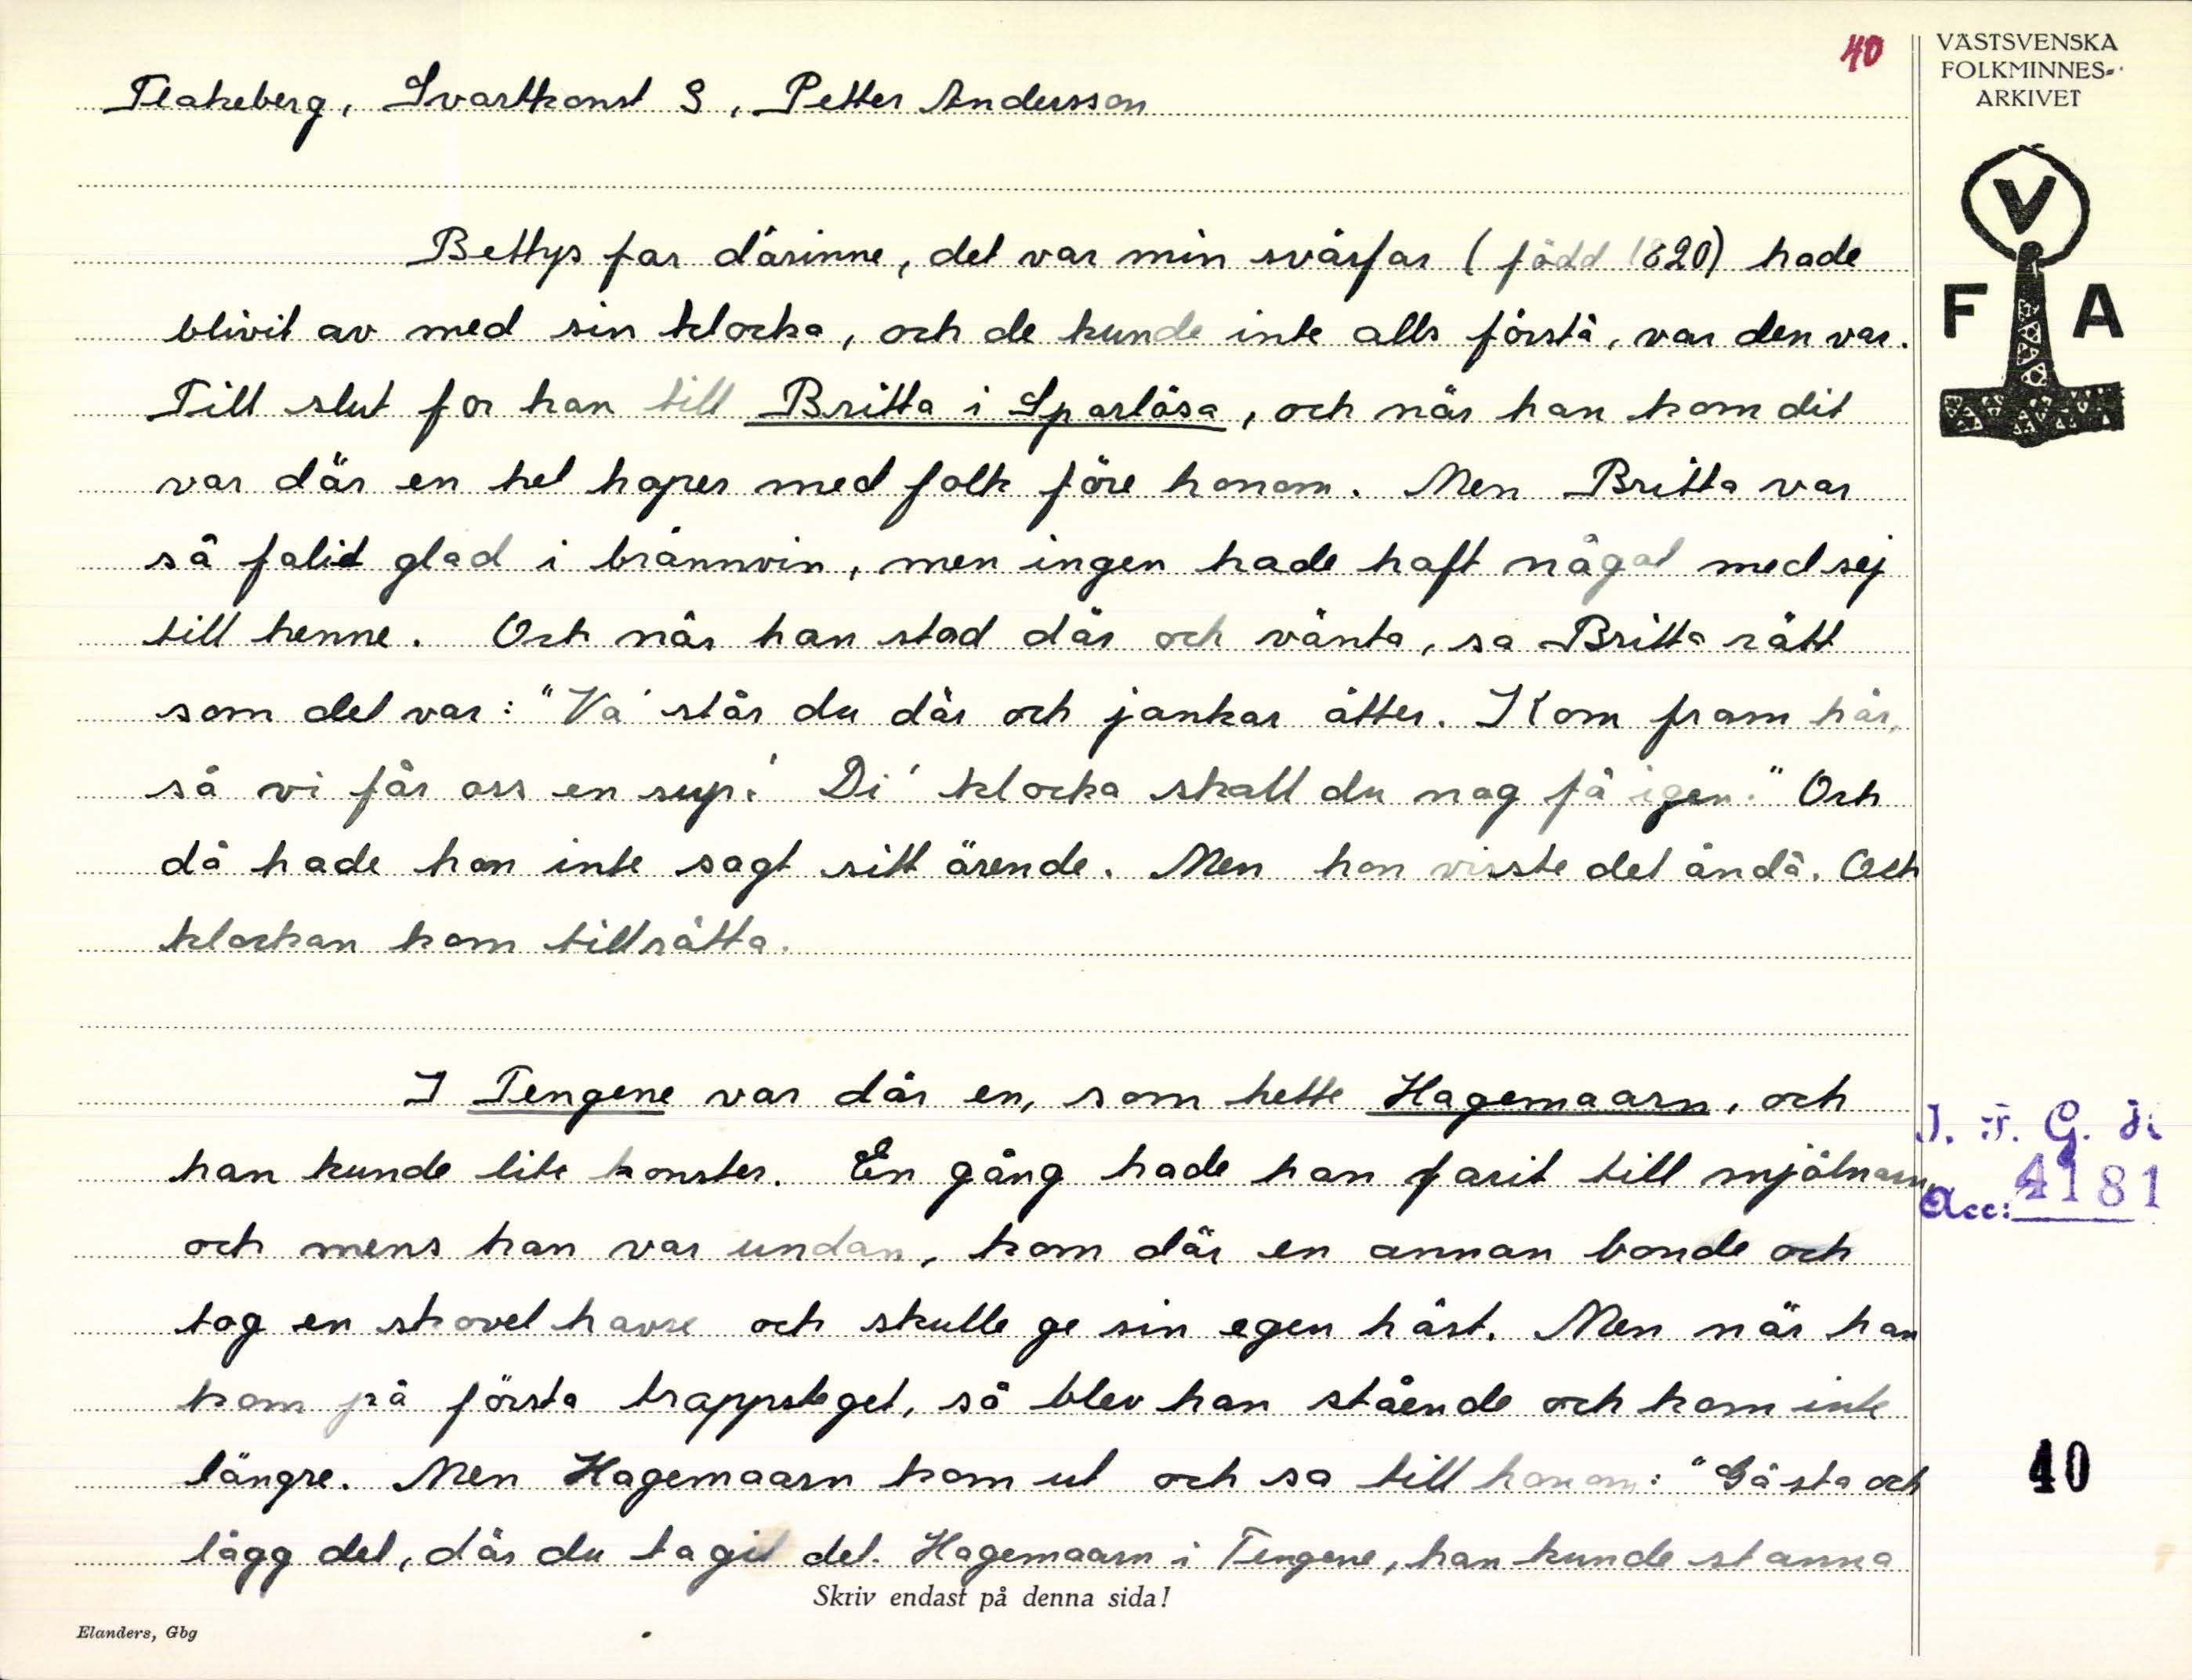 40
VÄSTSVENSKA
FOLKMINNES-
ARKIVET
V
F A
Flakeberg, Svartkonst 3, Petter Andersson
Bettys far därinne, det var min svärfar (född 1820) hade
blivit av med sin klocka, och de kunde inte alls förstå, var den var.
Till slut for han till Britta i Sparlösa, och när han kom dit
var där en hel hoper med folk före honom. Men Britta var
så falid glad i brännvin, men ingen hade haft något med sej
till henne. Och när han stod där och vänta, sa Britta rätt
som det var: "Va' står du där och jankar ätter. Kom fram här,
så vi får oss en sup! Di' klocka skall du nog få igen." Och
då hade han inte sagt sitt ärende. Men hon visste det ändå. Och
klockan kom tillrätta.
I Tengene var där en, som hette Hagemaarn, och
han kunde lite konster. En gång hade han farit till mjölnarn,
och mens han var undan, kom där en annan bonde och
tog en skovel havre och skulle ge sin egen häst. Men när han
kom på första trappsteget, så blev han stående och kom inte
längre. Men Hagemaarn kom ut och sa till honom: "Gå sta och
lägg det, där du tagit det. Hagemaarn i Tengene, han kunde stanna
I. F. G. H.
Acc: 4181
40
Skriv endast på denna sida!
Elanders, Gbg